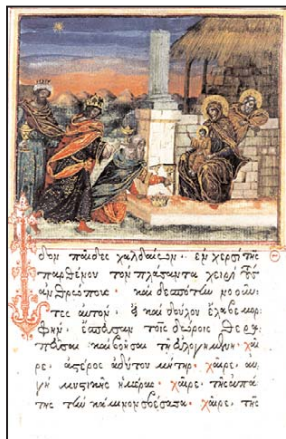 Ἴδον παῖδες χαλδαίων· ἐν χερσὶ τῆς
παρθένου τὸν πλάσαντα χειρὶ τοὺς
ἀνθρώπους· καὶ δεσπότην νοοῦν
τες αὐτόν· εἰ καὶ δούλου ἔλαβε μορ
φήν· ἔσπευσαν τοῖς δώροις θερα
πεῦσαι καὶ βοῆσαι τῇ εὐλογημένῃ· χαῖ
ρε· ἀστέρος ἀδύτου μήτηρ· χαῖρε· αὐ
γὴ μυστικῆς ἡμέρας· χαῖρε· τῆς ἀπά
της τὴν κάμινον σβέσασα· χαῖρε· τῆς